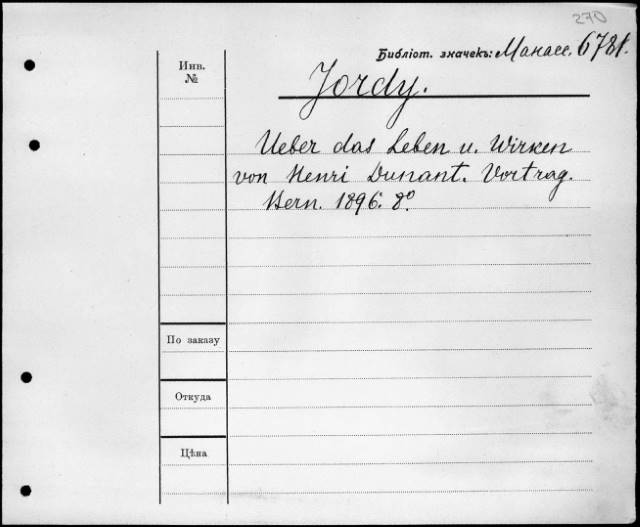 270
Библіот. значекъ: Манасс. 6781.
Инв.
№
Jordy.
Ueber das Leben u. Wirken
von Henri Dunant. Vortrag.
Bern. 1896. 8º.
По заказу
Откуда
Цѣна